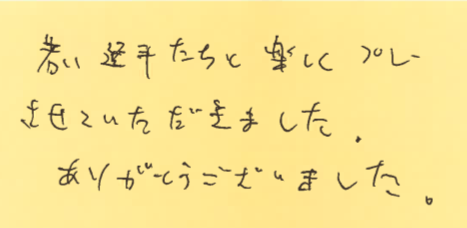 若い選手たちと楽しくプレー
させていただきました.
ありがとうございました。